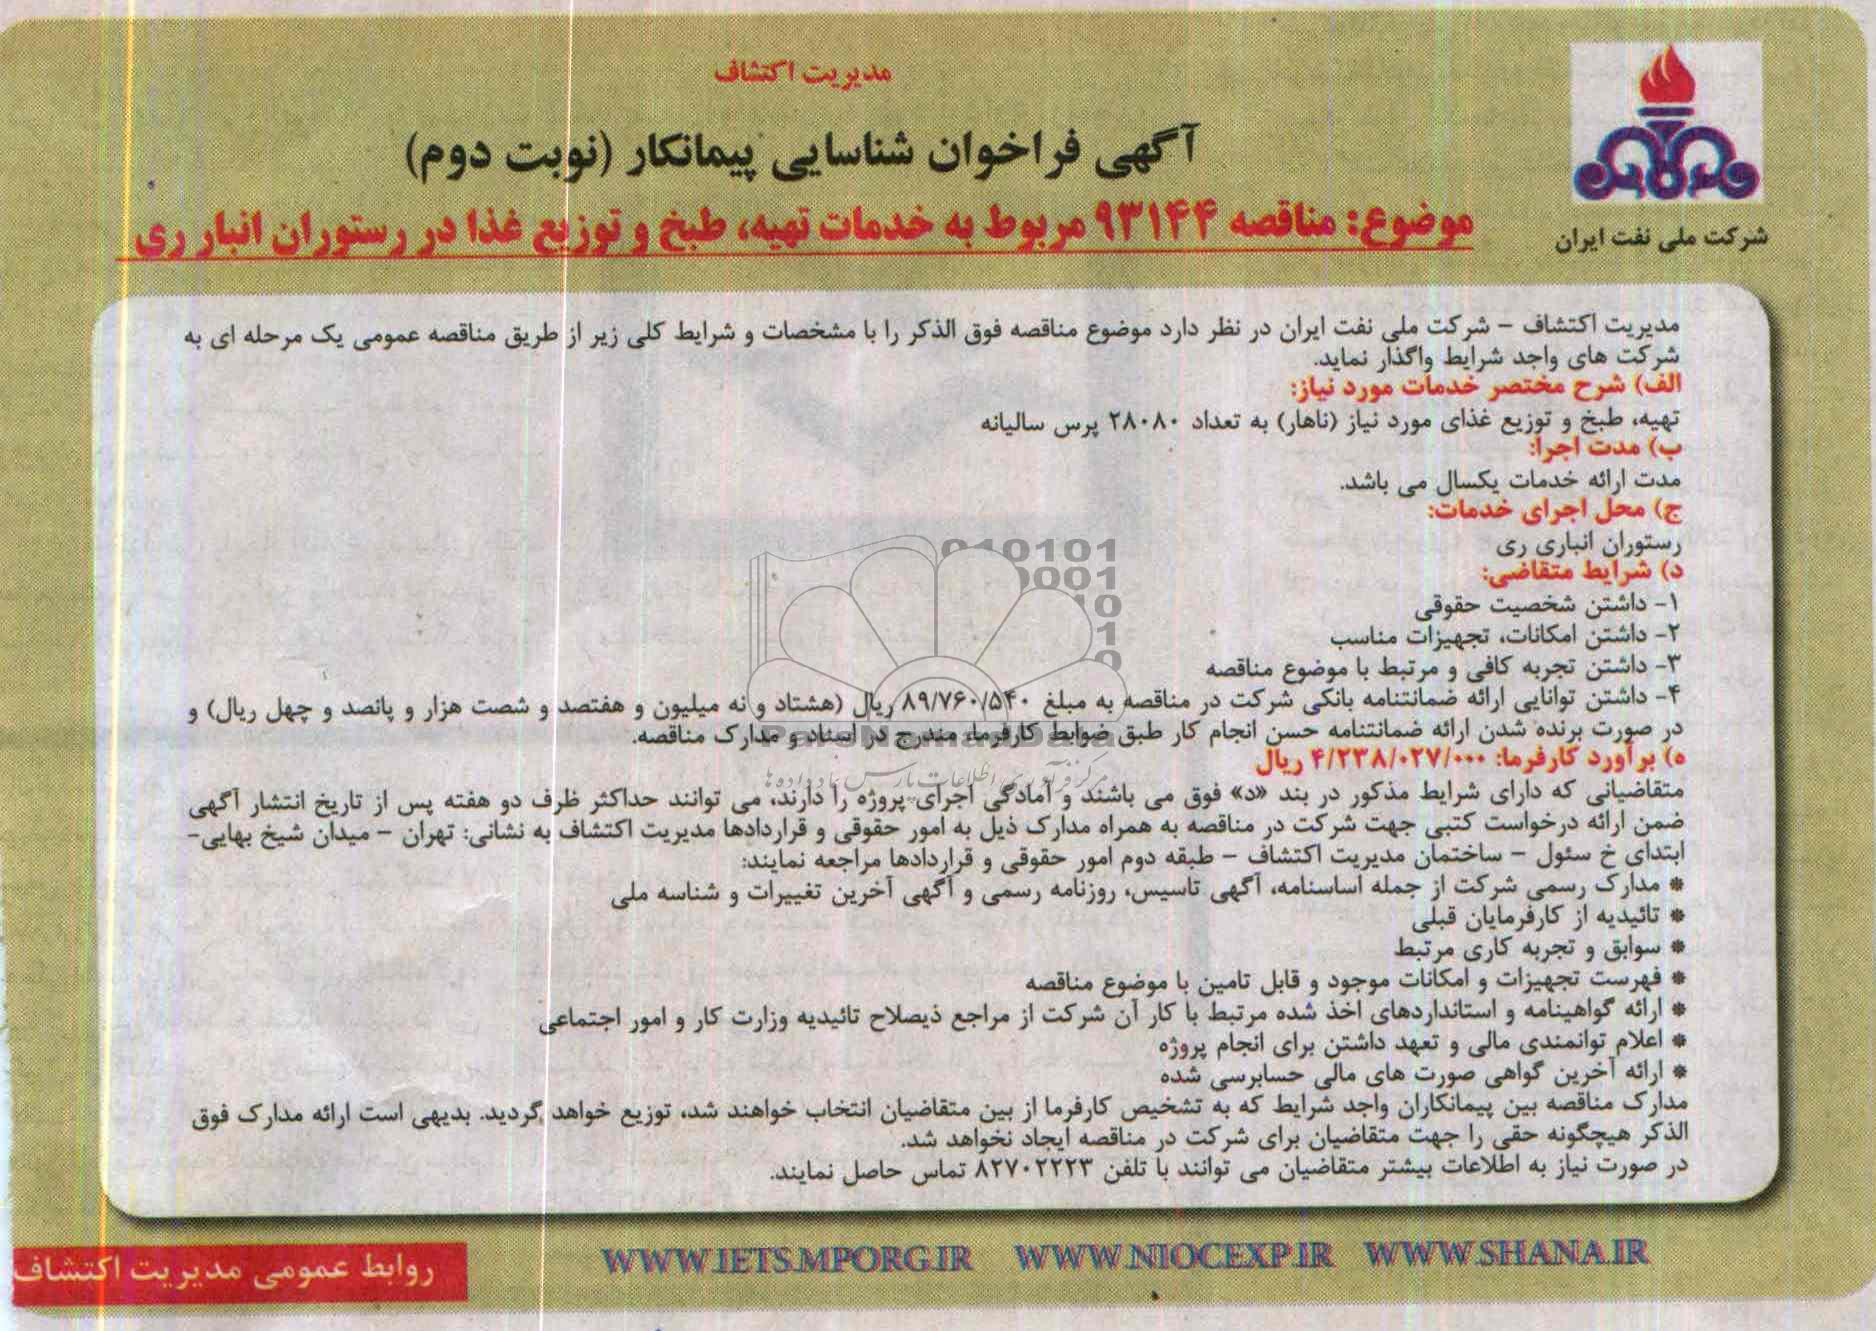 مدیریت اکتشاف
آگهی فراخوان شناسایی پیمانکار (نوبت دوم)
موضوع: مناقصه ۹۳۱۴۴ مربوط به خدمات تهیه، طبخ و توزیع غذا در رستوران انبار ری
شرکت ملی نفت ایران
مدیریت اکتشاف – شرکت ملی نفت ایران در نظر دارد موضوع مناقصه فوق الذکر را با مشخصات و شرایط کلی زیر از طریق مناقصه عمومی یک مرحله ای به
شرکت های واجد شرایط واگذار نماید.
الف) شرح مختصر خدمات مورد نیاز:
تهیه، طبخ و توزیع غذای مورد نیاز (ناهار) به تعداد ۲۸۰۸۰ پرس سالیانه
ب) مدت اجرا:
مدت ارائه خدمات یکسال می باشد.
ج) محل اجرای خدمات:
رستوران انباری ری
د) شرایط متقاضی:
۱- داشتن شخصیت حقوقی
۲- داشتن امکانات، تجهیزات مناسب
۳- داشتن تجربه کافی و مرتبط با موضوع مناقصه
۴- داشتن توانایی ارائه ضمانتنامه بانکی شرکت در مناقصه به مبلغ ۸۹/۷۶۰/۵۴۰ ریال (هشتاد و نه میلیون و هفتصد و شصت هزار و پانصد و چهل ریال) و
در صورت برنده شدن ارائه ضمانتنامه حسن انجام کار طبق ضوابط کارفرما، مندرج در اسناد و مدارک مناقصه.
ه) برآورد کارفرما: ۴/۲۳۸/۰۲۷/۰۰۰ ریال
متقاضیانی که دارای شرایط مذکور در بند «د» فوق می باشند و آمادگی اجرای پروژه را دارند، می توانند حداکثر ظرف دو هفته پس از تاریخ انتشار آگهی
ضمن ارائه درخواست کتبی جهت شرکت در مناقصه به همراه مدارک ذیل به امور حقوقی و قراردادها مدیریت اکتشاف به نشانی: تهران – میدان شیخ بهایی-
ابتدای خ سئول – ساختمان مدیریت اکتشاف – طبقه دوم امور حقوقی و قراردادها مراجعه نمایند:
* مدارک رسمی شرکت از جمله اساسنامه، آگهی تاسیس، روزنامه رسمی و آگهی آخرین تغییرات و شناسه ملی
* تائیدیه از کارفرمایان قبلی
* سوابق و تجربه کاری مرتبط
* فهرست تجهیزات و امکانات موجود و قابل تامین با موضوع مناقصه
* ارائه گواهینامه و استانداردهای اخذ شده مرتبط با کار آن شرکت از مراجع ذیصلاح تائیدیه وزارت کار و امور اجتماعی
* اعلام توانمندی مالی و تعهد داشتن برای انجام پروژه
* ارائه آخرین گواهی صورت های مالی حسابرسی شده
مدارک مناقصه بین پیمانکاران واجد شرایط که به تشخیص کارفرما از بین متقاضیان انتخاب خواهند شد، توزیع خواهد گردید. بدیهی است ارائه مدارک فوق
الذکر هیچگونه حقی را جهت متقاضیان برای شرکت در مناقصه ایجاد نخواهد شد.
در صورت نیاز به اطلاعات بیشتر متقاضیان می توانند با تلفن ۸۲۷۰۲۲۲۳ تماس حاصل نمایند.
WWW.IETS.MPORG.IR WWW.NIOCEXP.IR WWW.SHANA.IR
روابط عمومی مدیریت اکتشاف